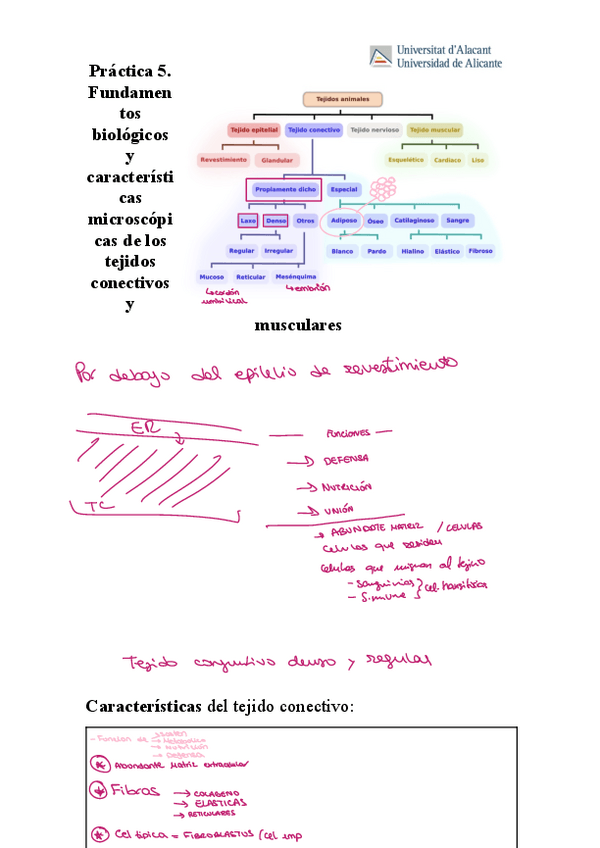 Universitat d'Alacant
Universidad de Alicante
Práctica 5.
Fundamen
tos
biológicos
y
característi
cas
microscópi
cas de los
tejidos
conectivos
y
musculares
Tejidos animales
Tejido epitelial Tejido conectivo Tejido nervioso Tejido muscular
Revestimiento Glandular Esquelético Cardíaco Liso
Propiamente dicho Especial
Laxo Denso Otros Adiposo Óseo Catilaginoso Sangre
Regular Irregular Blanco Pardo Hialino Elástico Fibroso
Mucoso Reticular Mesénquima
↳ cordón
umbilical
↳ embrión
Por debajo del epitelio de revestimiento
ER
TC
— FUNCIONES —
→ DEFENSA
→ NUTRICIÓN
→ UNIÓN
→ ABUNDATE MATRIZ / CELULAS
Celulas que residen
Celulas que migran al tejido
- sanguineas
- S. inmune
Tejido conjuntivo denso y regular
Características del tejido conectivo:
- Funcion de → sosten
→ Metabolica
→ nutrición
→ Defensa
* Abundante Matriz extracelular
* Fibras → COLAGENO
→ ELASTICAS
→ RETICULARES
* Cel típica = FIBROBLASTUS (cel imp